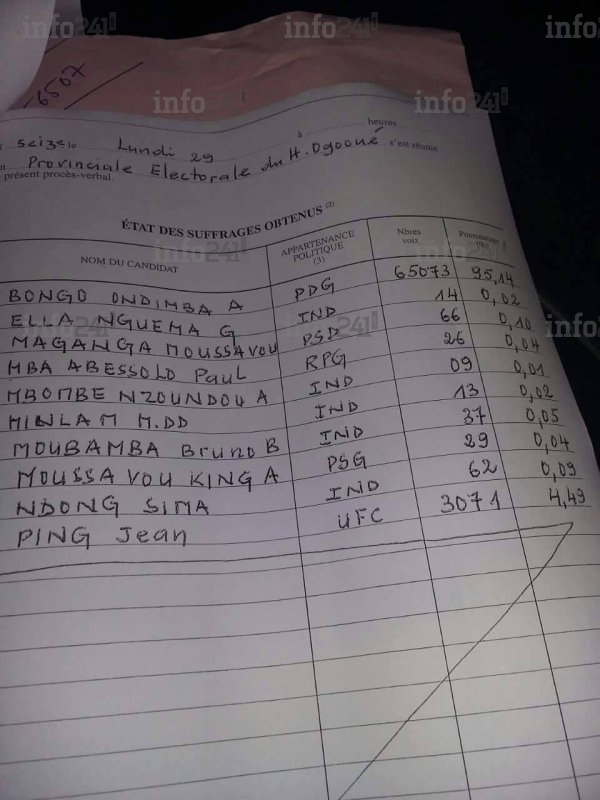 info241
6507
heures
seize le Lundi 29 à
Provinciale Electorale du H. Ogooué s'est réunie
présent procès-verbal.
ÉTAT DES SUFFRAGES OBTENUS (2)
NOM DU CANDIDAT APPARTENANCE POLITIQUE (3) Nbres voix Pourcentage (%)
BONGO ONDIMBA A PDG 65073 95,14
ELLA NGUEMA G IND 14 0,02
MAGANGA MOUSSAVOU PSD 66 0,10
MBA ABESSOLO Paul RPG 26 0,04
MBOMBE NZOUNDOU A IND 09 0,01
MINLAM M.DD IND 13 0,02
MOUBAMBA Bruno B IND 37 0,05
MOUSSAVOU KING A PSG 29 0,04
NDONG SIMA IND 62 0,09
PING Jean UFC 3071 4,49